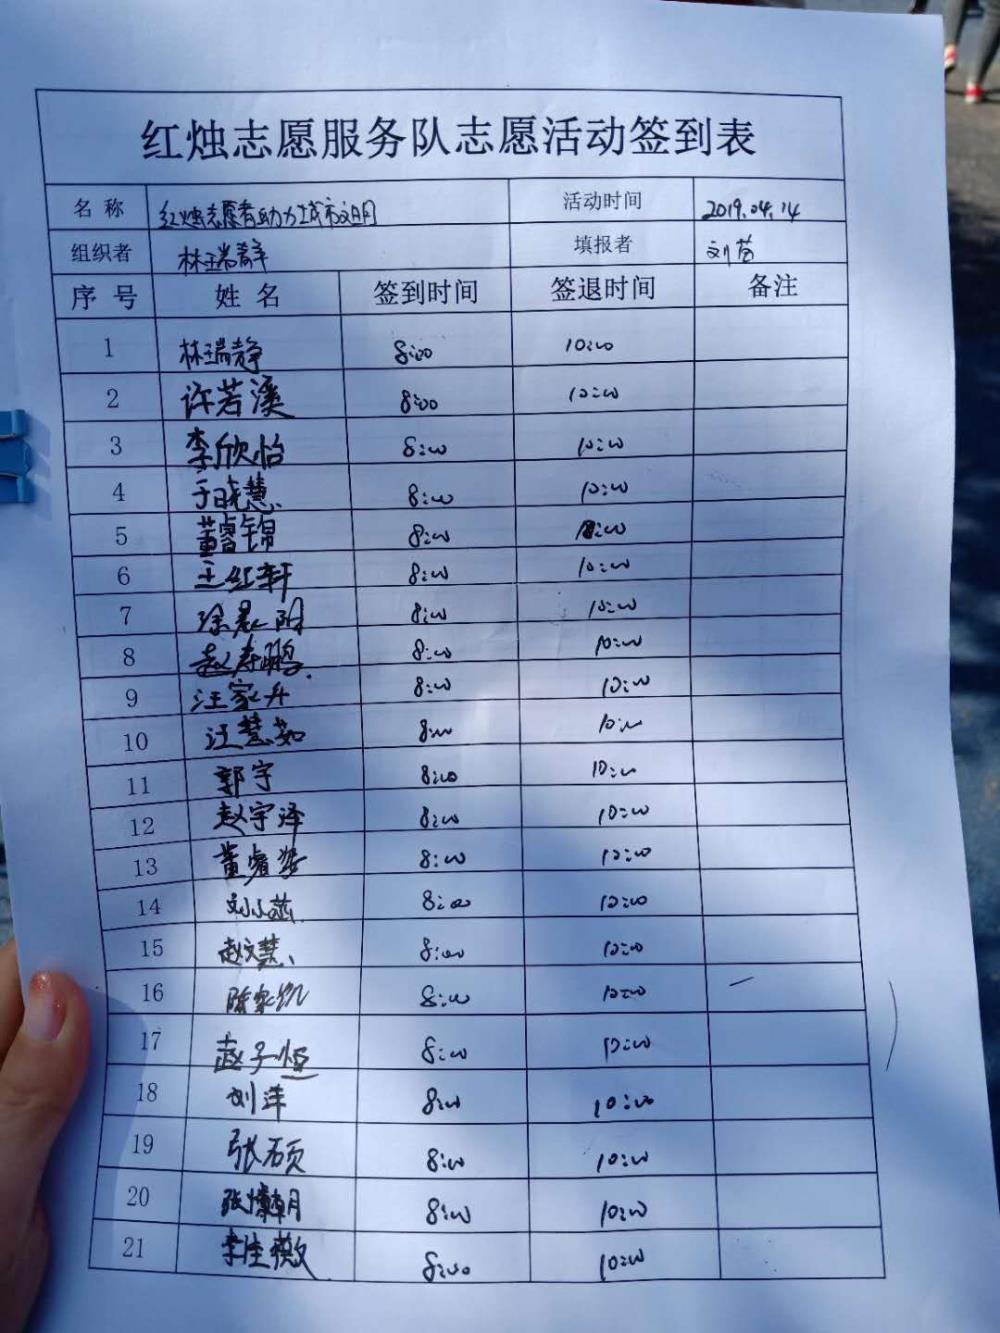 红烛志愿服务队志愿活动签到表
名称 红烛志愿者助力城市文明 活动时间 2019.04.14
组织者 林瑞静 填报者 刘茵
序号 姓名 签到时间 签退时间 备注
1 林瑞静 8:00 10:00
2 许若溪 8:00 10:00
3 李欣怡 8:00 10:00
4 于晓慧 8:00 10:00
5 董睿锦 8:00 10:00
6 王红轩 8:00 10:00
7 徐晨阳 8:00 10:00
8 赵寿鹏 8:00 10:00
9 汪家升 8:00 10:00
10 汪慧茹 8:00 10:00
11 郭宇 8:00 10:00
12 赵宇泽 8:00 10:00
13 董睿姿 8:00 10:00
14 刘小菡 8:00 10:00
15 赵文慧 8:00 10:00
16 陈家凯 8:00 10:00
17 赵子恒 8:00 10:00
18 刘洋 8:00 10:00
19 张硕 8:00 10:00
20 张朝 8:00 10:00
21 李佳薇 8:00 10:00